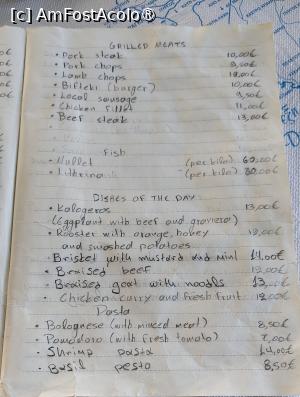 [c] AmFostAcolo®
GRILLED MEATS
• Pork steak 10,00€
• Pork chops 9,50€
• Lamb chops 12,00€
• Bifteki (burger) 10,00€
• Local sausage 9,50€
• Chicken fillet 11,00€
• Beef steak 13,00€
Fish
• Mullet (per kilo) 60,00€
• Lithrina (per kilo) 80,00€
DISHES OF THE DAY
• Kalogeros 13,00€
(Eggplant with beef and graviera)
• Rooster with orange, honey 12,00€
and smashed potatoes
• Brisket with mustard and 14,00€
• Braised beef 12,00€
• Braised goat with noodls 13,00€
• Chicken curry and fresh fruit 12,00€
Pasta
• Bolognese (with minced meat) 8,50€
• Pomodoro (with fresh tomato) 7,00€
• Shrimp pasta 14,00€
• Basil pesto 8,50€